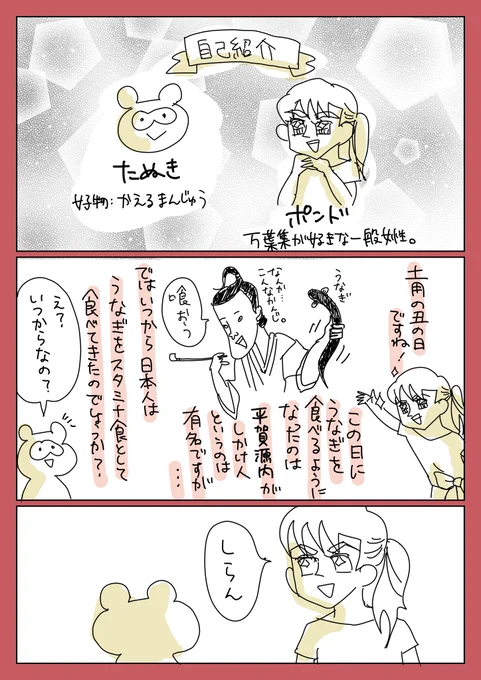 自己紹介
たぬき
好物:かえるまんじゅう
ポンド
万葉集が好きな一般女性。
土用の丑の日
ですね!
この日に
うなぎを
食べるように
なったのは
平賀源内が
しかけ人
というのは
有名ですが
…
うなぎ
なんか…
こんなかんじ。
喰おう
ではいつから日本人は
うなぎをスタミナ食として
食べてきたのでしょうか?
え?
いつからなの?
しらん